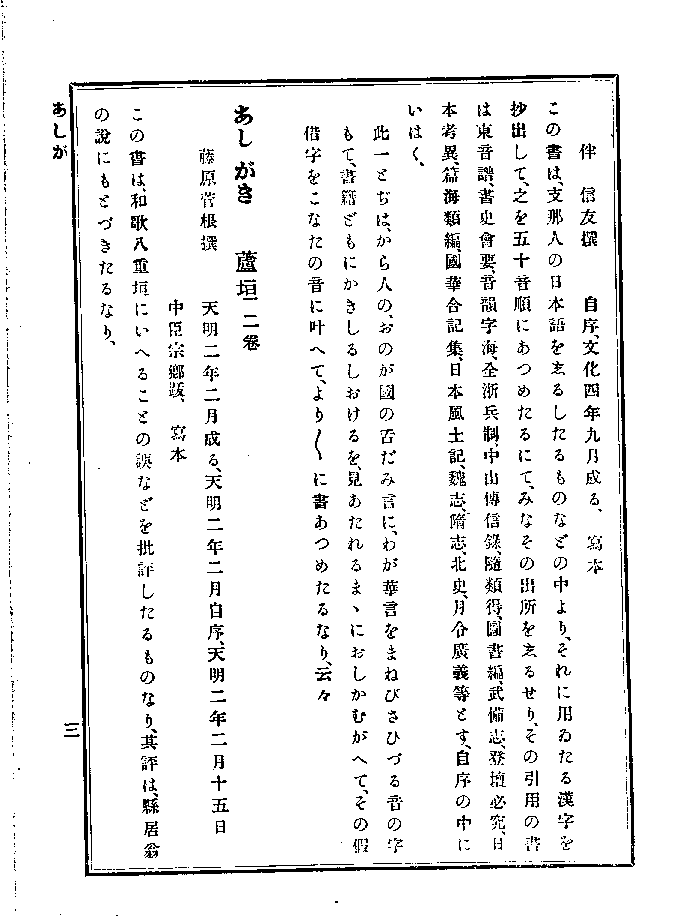 伴　信友撰　　自序、文化四年九月成る、　寫本
この書は、支那人の日本語を志るしたるものなどの中より、それに用ゐたる漢字を
抄出して、之を五十音順にあつめたるにて、みなその出所を志るせり、その引用の書
は東音譜、書史會要、音韻字海、全浙兵制、中山傳信錄、隨類得、圖書編、武備志、登壇必究、日
本考異、篇海類編、國華合記集、日本風土記、魏志、隋志、北史、月令廣義等とす、自序の中に
いはく、
此一とぢは、から人の、おのが國の舌だみ言に、わが華言をまねびさひづる音の字
もて、書籍どもにかきしるしおけるを、見あたれるまゝにおしかむがへて、その假
借字をこなたの音に叶へて、より〳〵に書あつめたるなり、云々
あしがき　蘆垣　二卷
藤原菅根撰　　天明二年二月成る、天明二年二月自序、天明二年二月十五日
中臣宗鄕跋、　寫本
この書は、和歌八重垣にいへることの誤などを批評したるものなり、其評は、縣居翁
の說にもとづきたるなり、
あしが
三